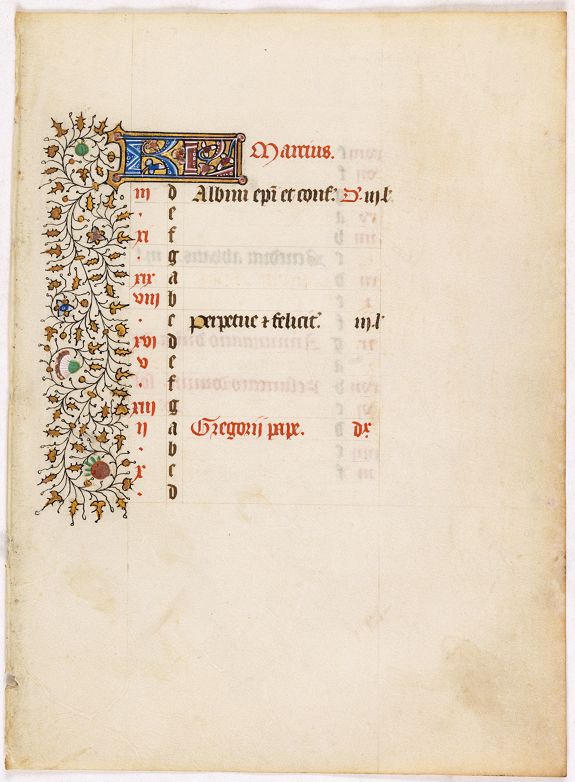 Marcius.
iii d Albini ep̄i et conf. D. iij l
. e
xi f
. g
xix a
viii b
. c Perpetue ⁊ felicit. iij l
xvi d
v e
. f
xiii g
ij a Gregorij pape. dx
. b
x c
. d